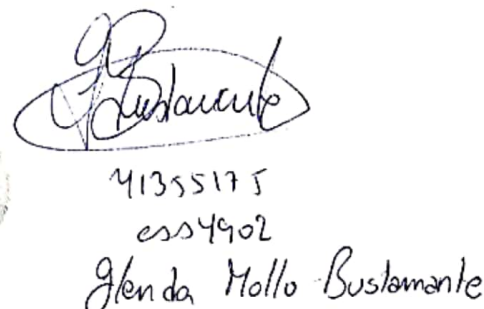 GBustamante
41355175
ess4902
Glenda Mollo Bustamante